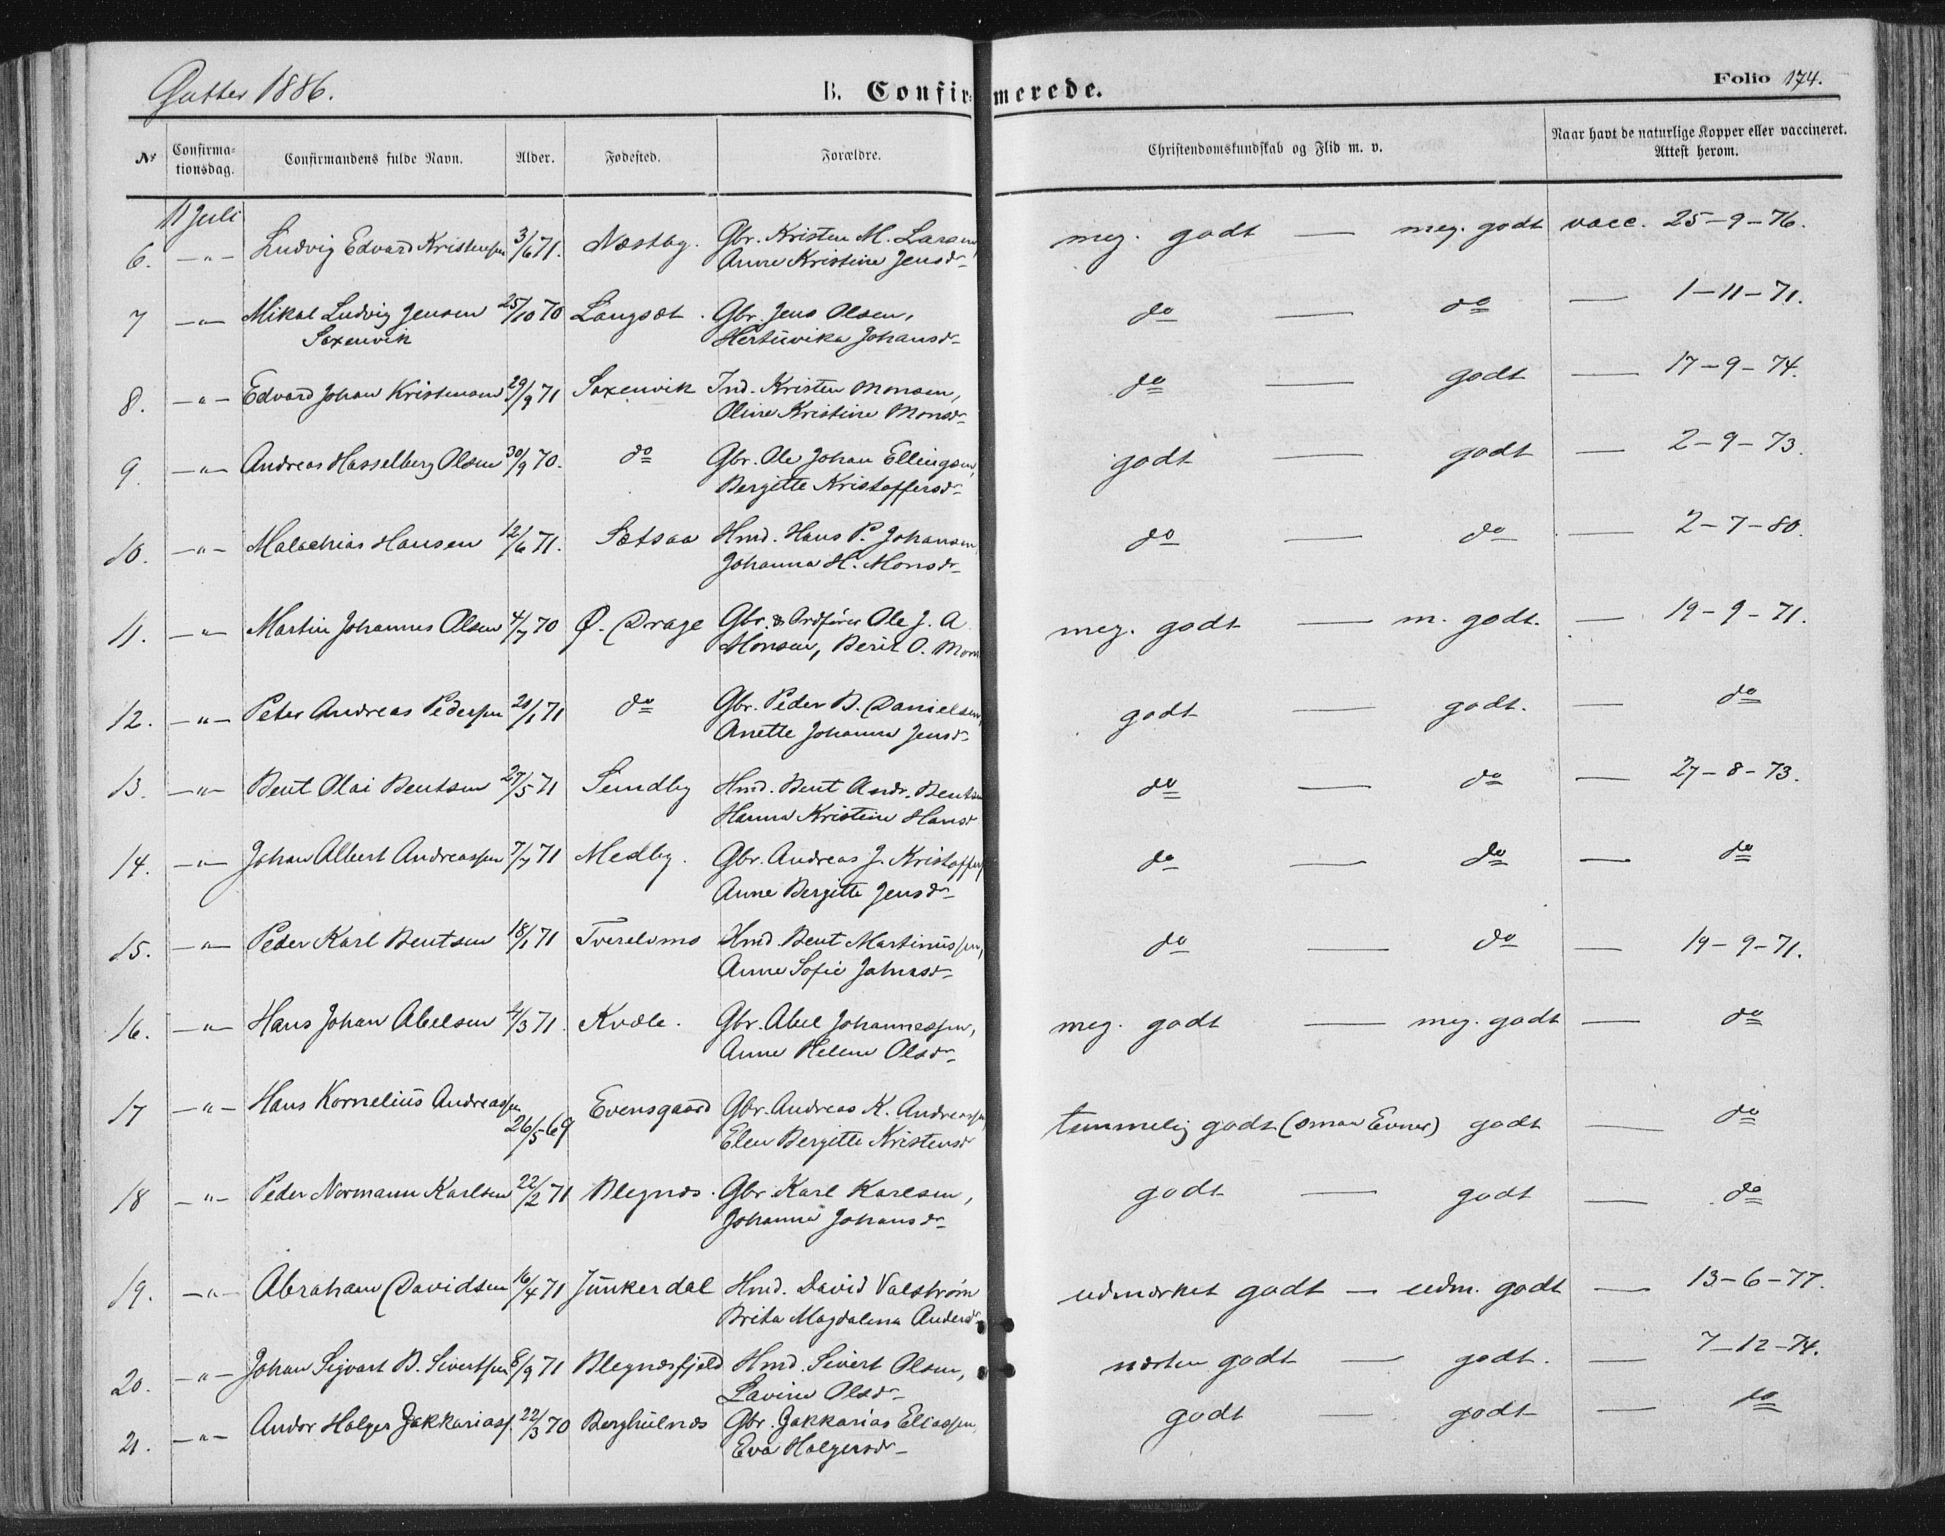 Gutter 1886.
B. Confirmerede.
Folio 174.
No Confirmationsdag. Confirmandens fulde Navn. Alder. Fødested. Forældre. Christendomskundskab og Flid m. v. Naar havt de naturlige Kopper eller vaccineret. Attest herom.
11 Juli
6. —"— Ludvig Edvard Kristensen 3/6 71. Næstby. Gbr. Kristen M. Larsen, meg. godt — meg. godt vacc. 25-9-76.
Anne Kristine Jensdr
7 —"— Mikal Ludvig Jensen 25/10 70 Langsæt. Gbr. Jens Olsen, do — do — 1-11-71.
Saxenvik Hertuvika Johansdr
8. —"— Edvard Johan Kristensen 29/9 71 Saxenvik Ind. Kristen Monsen, do — godt — 17-9-74.
Oline Kristine Monsdr
9. —"— Andreas Hasselberg Olsen 30/9 70. do Gbr. Ole Johan Ellingsen, godt — godt — 2-9-73.
Bergitte Kristoffersdr
10. —"— Malachias Hansen 12/6 71. Sætsaa Hmd. Hans P. Johansen, do — do — 2-7-80.
Johanna H. Monsdr
11. —"— Martin Johannes Olsen 4/7 70 Ø. Drage Gbr. & Ordfører Ole J. A. meg. godt — m. godt. — 19-9-71.
Monsen, Berit O. Mons
12. —"— Peter Andreas Pedersen 21/1 71 do Gbr. Peder B. Danielsen, godt — godt. — do
Anette Johanna Jensdr
13. —"— Bent Olai Bentsen 27/5 71 Sundby Hmd. Bent Andr. Bentsen do — do — 27-8-73.
Hanna Kristine Hansdr
14. —"— Johan Albert Andreassen 7/7 71 Medby. Gbr. Andreas J. Kristoffers do — do — do
Anne Bergitte Jensdr
15. —"— Peder Karl Bentsen 18/1 71 Tverelvmo Hmd. Bent Martinussen, do — do — 19-9-71.
Anne Sofie Johnsdr
16. —"— Hans Johan Abelsen 4/3 71. Kvæle. Gbr. Abel Johannessen, meg. godt — meg. godt — do
Anne Helene Olsdr
17 —"— Hans Kornelius Andreassen 26/5 69 Evensgaard Gbr. Andreas K. Andreassen, temmelig godt (smaa Evner) godt — do
Elen Bergitte Kristensdr
18 —"— Peder Normann Karlsen 22/2 71 Blegnæs. Gbr. Karl Karlsen, godt — godt — do
Johanna Johansdr
19. —"— Abraham Davidsen 16/4 71 Junkerdal Hmd. David Valstrøm udmærket godt — udm. godt — 13-6-77.
Brita Magdalena Andersdr
20. —"— Johan Sigvart B. Sivertsen 8/9 71 Blegnæsfjeld Hmd. Sivert Olsen, næsten godt — godt. — 7-12-74.
Lavine Olsdr
21. —"— Andor Holger Zakkariass. 22/3 70 Berghulnæs Gbr. Zakkarias Eliassen, godt — godt — do
Eva Holgersdr